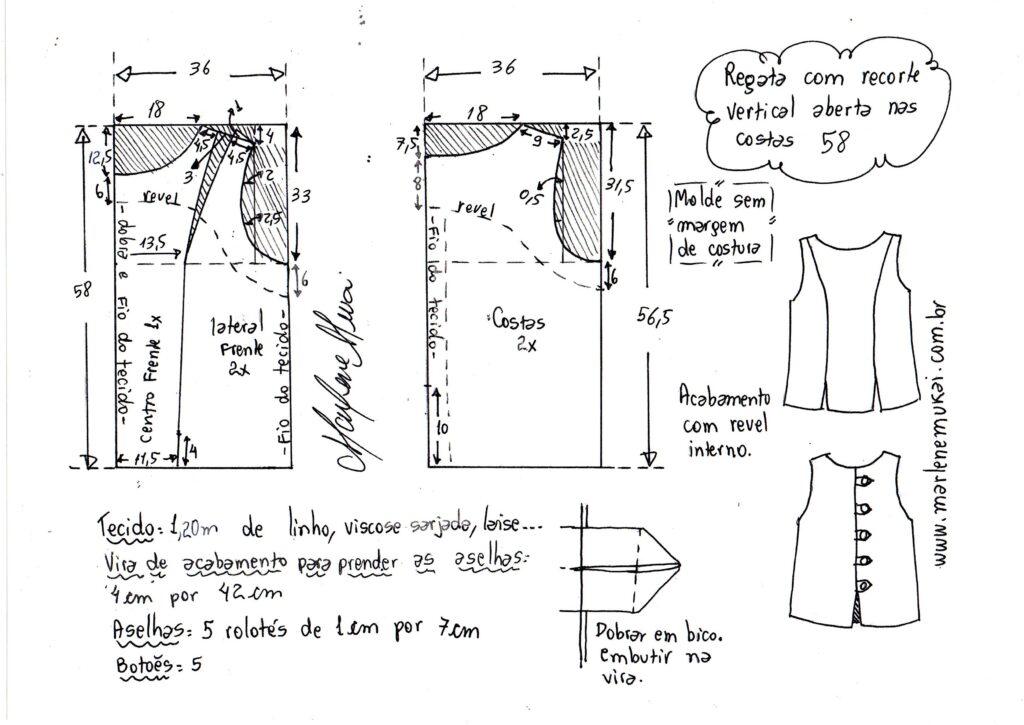 36
18
1
4,5
4,5
4
12,5
3
2
33
6
revel
2,5
13,5
6
58
-dobra e Fio do tecido-
Centro Frente 1x
lateral
Frente
2x
-Fio do tecido-
4
11,5
36
18
7,5
9
2,5
8
0,5
31,5
revel
6
-Fio do tecido-
Costas
2x
56,5
10
Regata com recorte
vertical aberta nas
costas 58
Molde sem
margem
de costura
Acabamento
com revel
interno.
www.marlenemukai.com.br
Marlene Mukai
Tecido: 1,20m de linho, viscose sarjada, laise...
Vira de acabamento para prender as aselhas:
4cm por 42cm
Aselhas: 5 rolotés de 1cm por 7cm
Botões: 5
Dobrar em bico.
embutir na
vira.